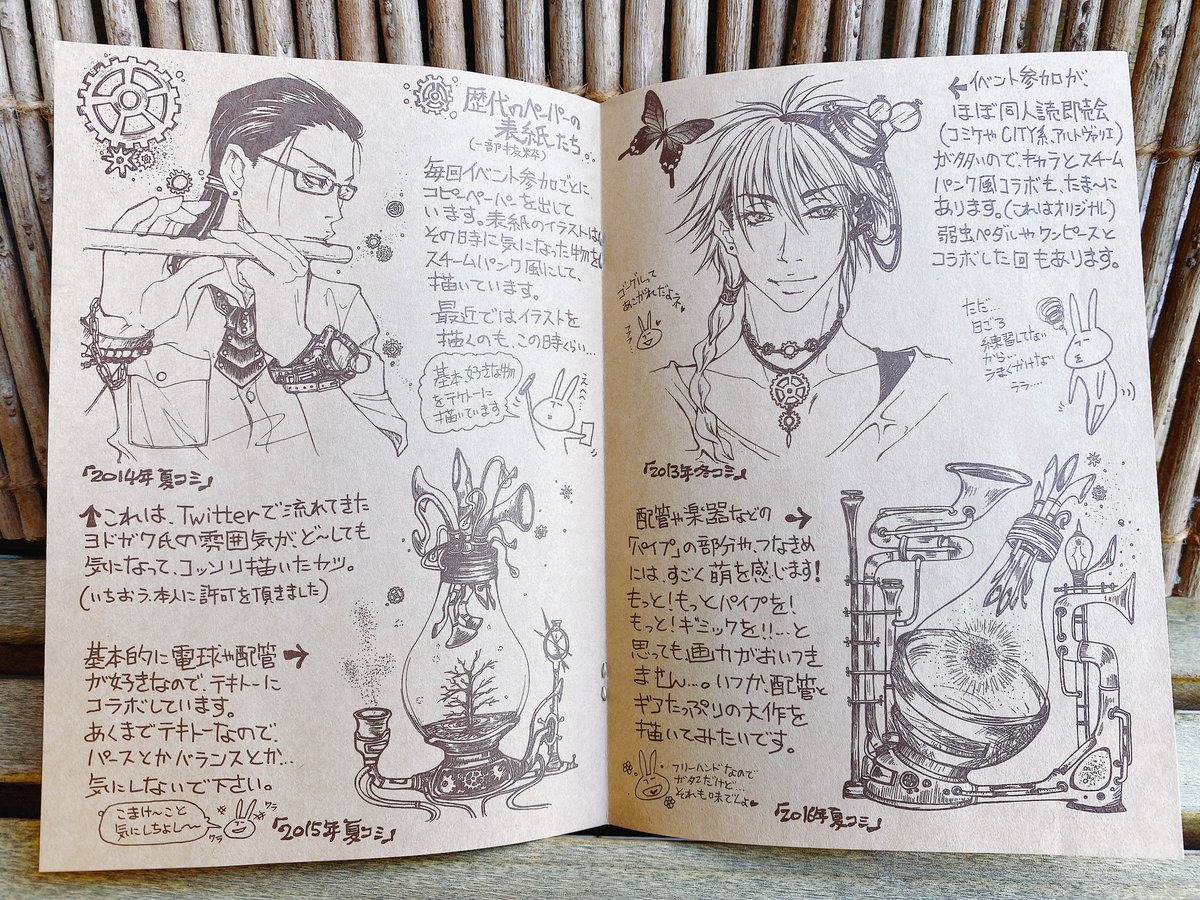 歴代のペーパーの
表紙したち..
(一部抜粋)
毎回イベント参加ごとに
コピーペーパーを出して
います。表紙のイラストは
その時に気になった物を
スチームパンク風にして、
描いています。
最近ではイラストを
描くのも、この時くらい…
基本、好きな物
をテケトーに
描いています
えへへ…
「2014年夏コミ」
↑これは、Twitterで流れてきた
ヨドガワ氏の雰囲気が、ど〜しても
気になって、コッソリ描いたヤツ。
(いちおう、本人に許可を頂きました)
基本的に電球や配管→
が好きなので、テキトーに
コラボしています。
あくまでテキトーなので、
パースとかバランスとか…
気にしないで下さい。
こまけ〜こと
気にしちよし〜
ワラ
ワラ
「2015年夏コミ」
←イベント参加が、
ほぼ同人誌即売会
(コミケやCITY系、アルトヴァリエ)
が多いので、キャラとスチーム
パンク風コラボも、たま〜に
あります。(これはオリジナル)
弱虫ペダルやワンピースと
コラボした回もあります。
ゴーグルって
あこがれだよネ♥
ただ…
日ごろ
練習してない
から…
うまくかけない
ララ…
「2013年冬コミ」
配管や楽器などの→
「パイプ」の部分や、つなぎめ
には、すごく萌を感じます!
もっと!もっとパイプを!
もっと!ギミックを!!…と
思っても、画力がおいつき
ません…。いつか、配管と
ギアたっぷりの大作を
描いてみたいです。
フリーハンドなので
ガタガタだけど…
それも味でしょ♥
「2016年夏コミ」